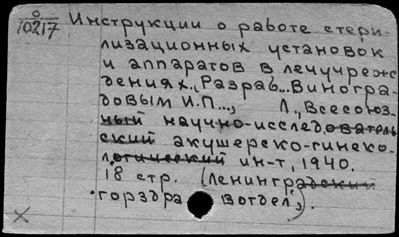 0
10217
Инструкции о работе стери-
лизационных установок
и аппаратов в лечучреж-
дениях. Разраб. Виногра-
довым И.П..., Л., Всесоюз-
ный научно-исследователь
ский акушерско-гинеко-
логический ин-т, 1940.
18 стр. (Ленинградский
горздравотдел).